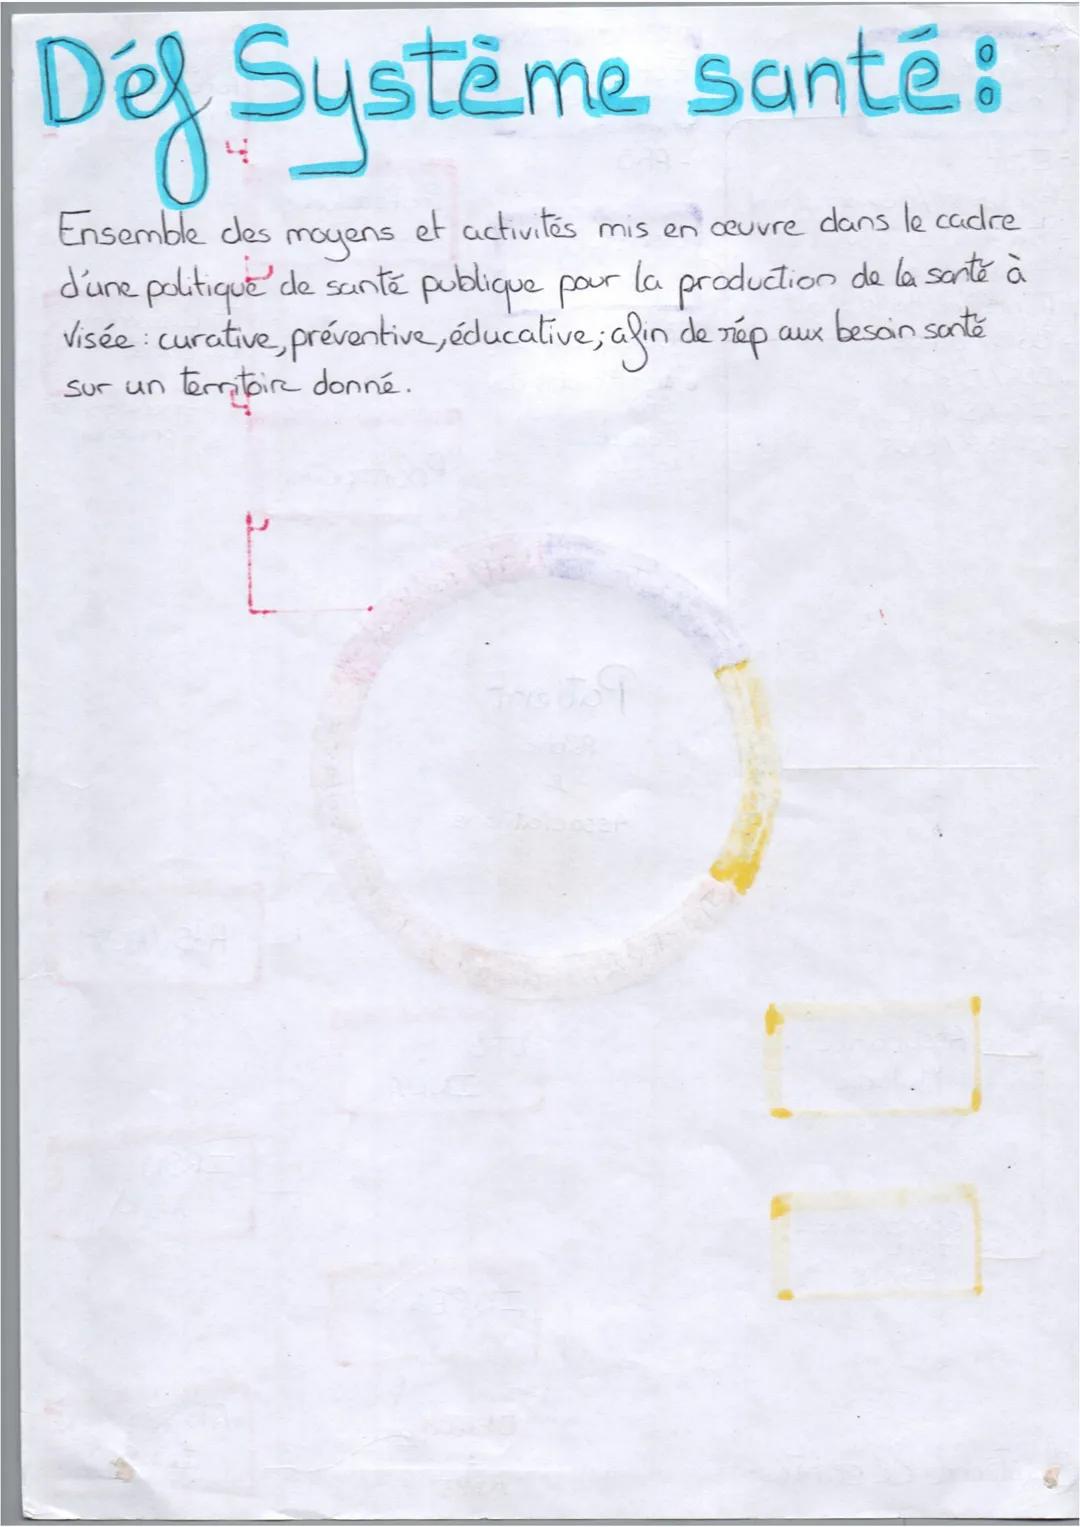 Déf Système santé :
Ensemble des moyens et activités mis en œuvre dans le cadre
d'une politique de santé publique pour la production de la santé à
visée : curative, préventive, éducative; afin de rép aux besoin santé
sur un territoire donné.
Patient